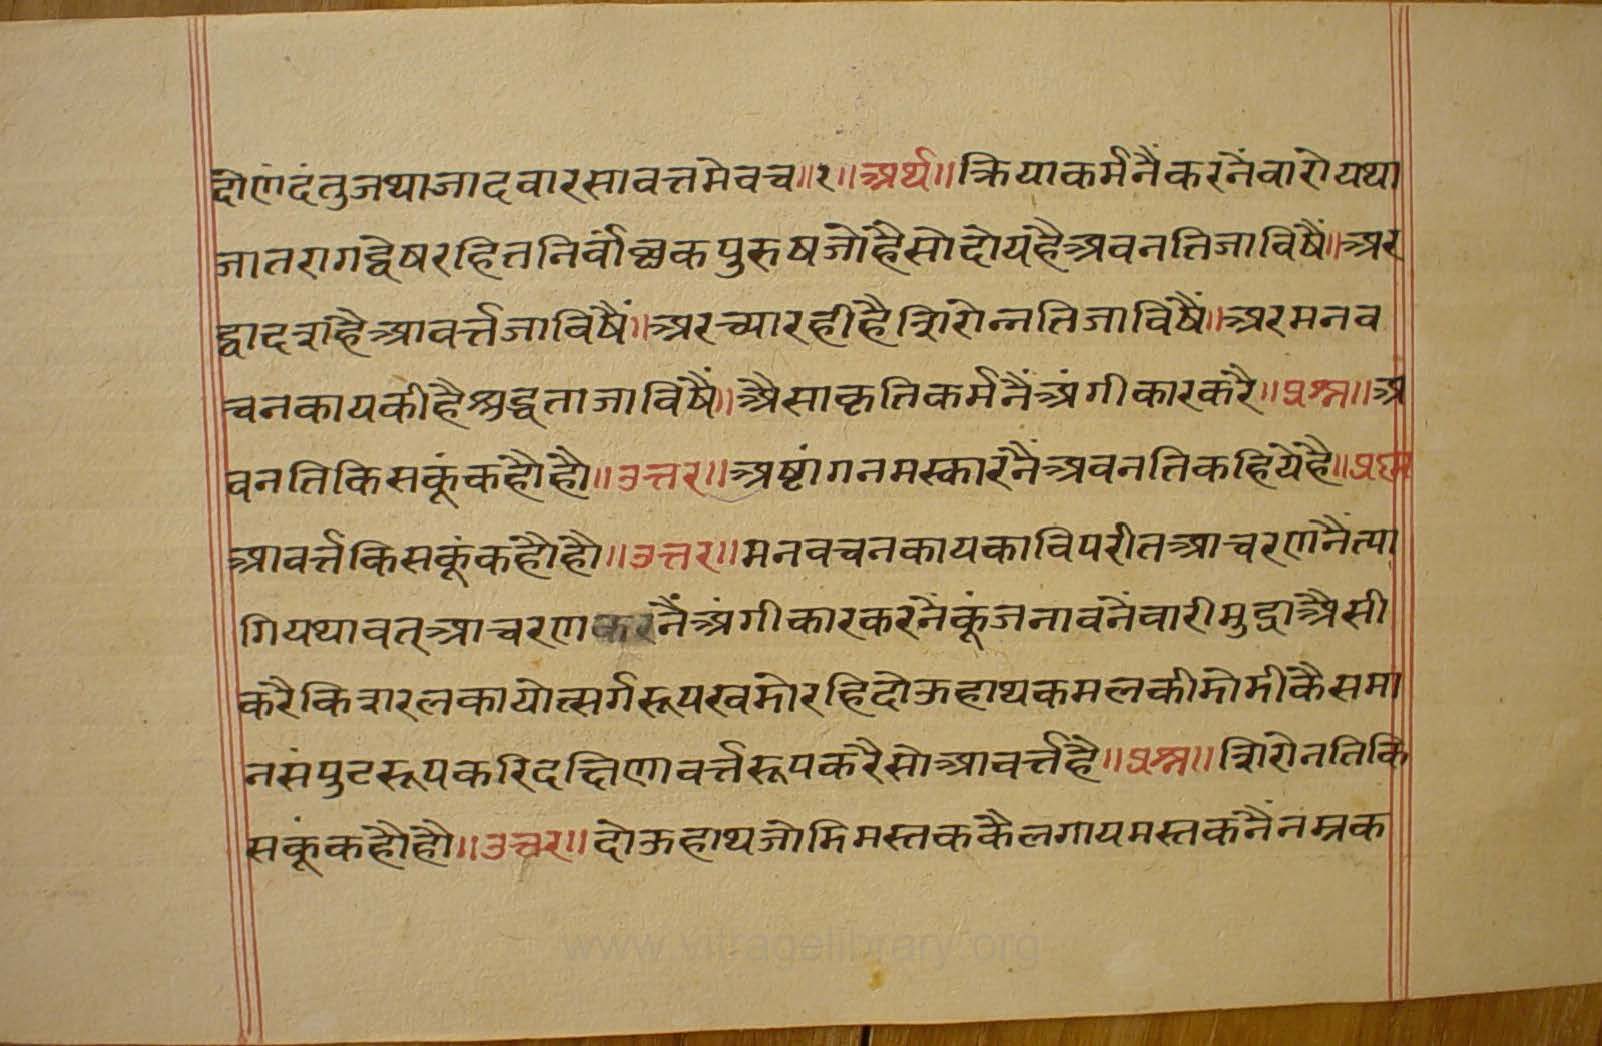 दोणंदंतुजथाजादवारसावत्तमेवच॥१॥अर्थ॥क्रियाकर्मनैंकरनेंवारोयथा
जातरागद्वेषरहितनिर्वांछकपुरुषजोहैसोदोयहैअवनतिजाविषैं॥अर
द्वादशहैआवर्त्तजाविषैं॥अरच्यारहीहैशिरोन्नतिजाविषैं॥अरमनव
चनकायकीहैशुद्धताजाविषैं॥औसाकृतिकर्मनैंअंगीकारकरै॥प्रश्न॥अ
वनतिकिसकूंकहौहौ॥उत्तर॥अष्टांगनमस्कारनैंअवनतिकहियेहै॥प्रश्न
आवर्त्तकिसकूंकहौहौ॥उत्तर॥मनवचनकायकाविपरीतआचरणनैंत्या
गियथावत्आचरणकरनैंअंगीकारकरनेंकूंजनावनेंवारीमुद्राऔसी
करैकिशरलकायोत्सर्गरूपखडोरहिदोऊहाथकमलकीडोडीकैसमा
नसंपुटरूपकरिदक्षिणावर्त्तरूपकरैसोआवर्त्तहै॥प्रश्न॥शिरोनतिकि
सकूंकहौहौ॥उत्तर॥दोऊहाथजोडिमस्तककैलगायमस्तकनैंनम्रक
www.vitragelibrary.org